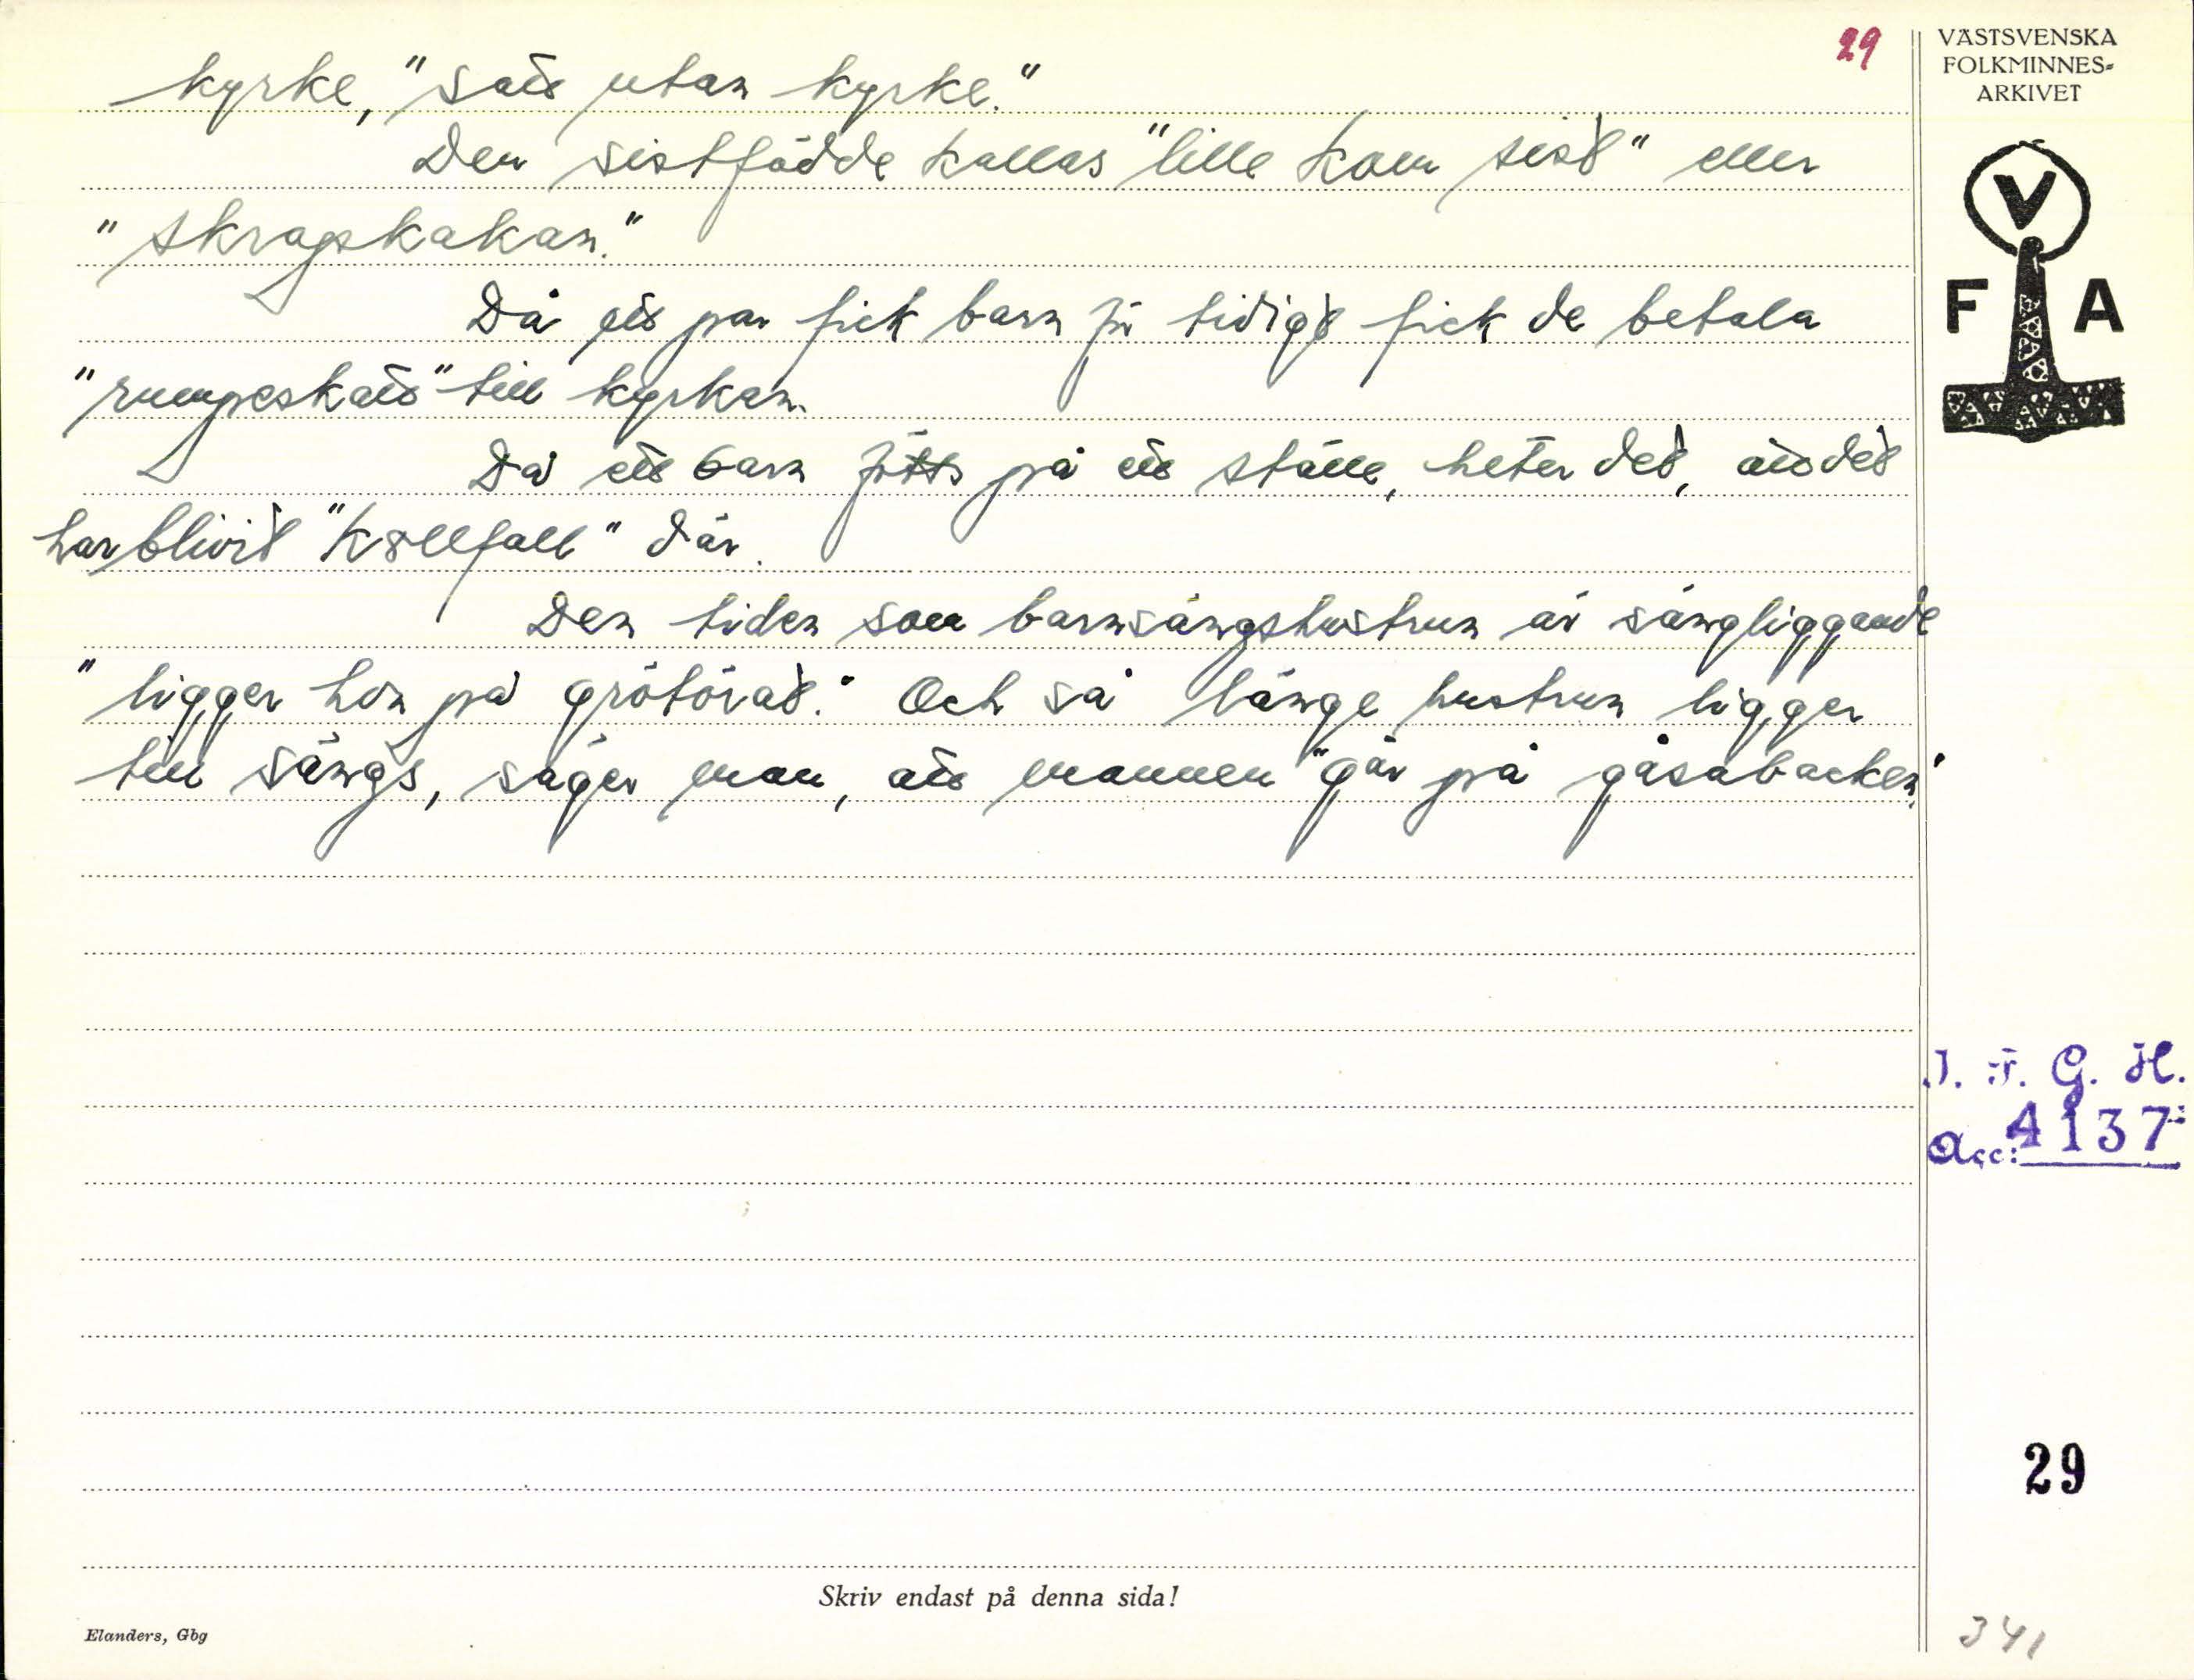 29
kyrke," "satt utan kyrke."
Den sistfödde kallas "lille kom sist" eller
"skrapkakan."
Då ett par fick barn för tidigt fick de betala
"rumpeskatt" till kyrkan.
Då ett barn fötts på ett ställe, heter det, att det
har blivit "Kollfall" där.
Den tiden som barnsängshustrun är sängliggande
"ligger hon på grötörat." Och så länge hustrun ligger
till sängs, säger man, att mannen "går på gåsabacken."
VÄSTSVENSKA
FOLKMINNES-
ARKIVET
V
F A
I. F. G. H.
Acc: 4137
29
Skriv endast på denna sida!
Elanders, Gbg
341